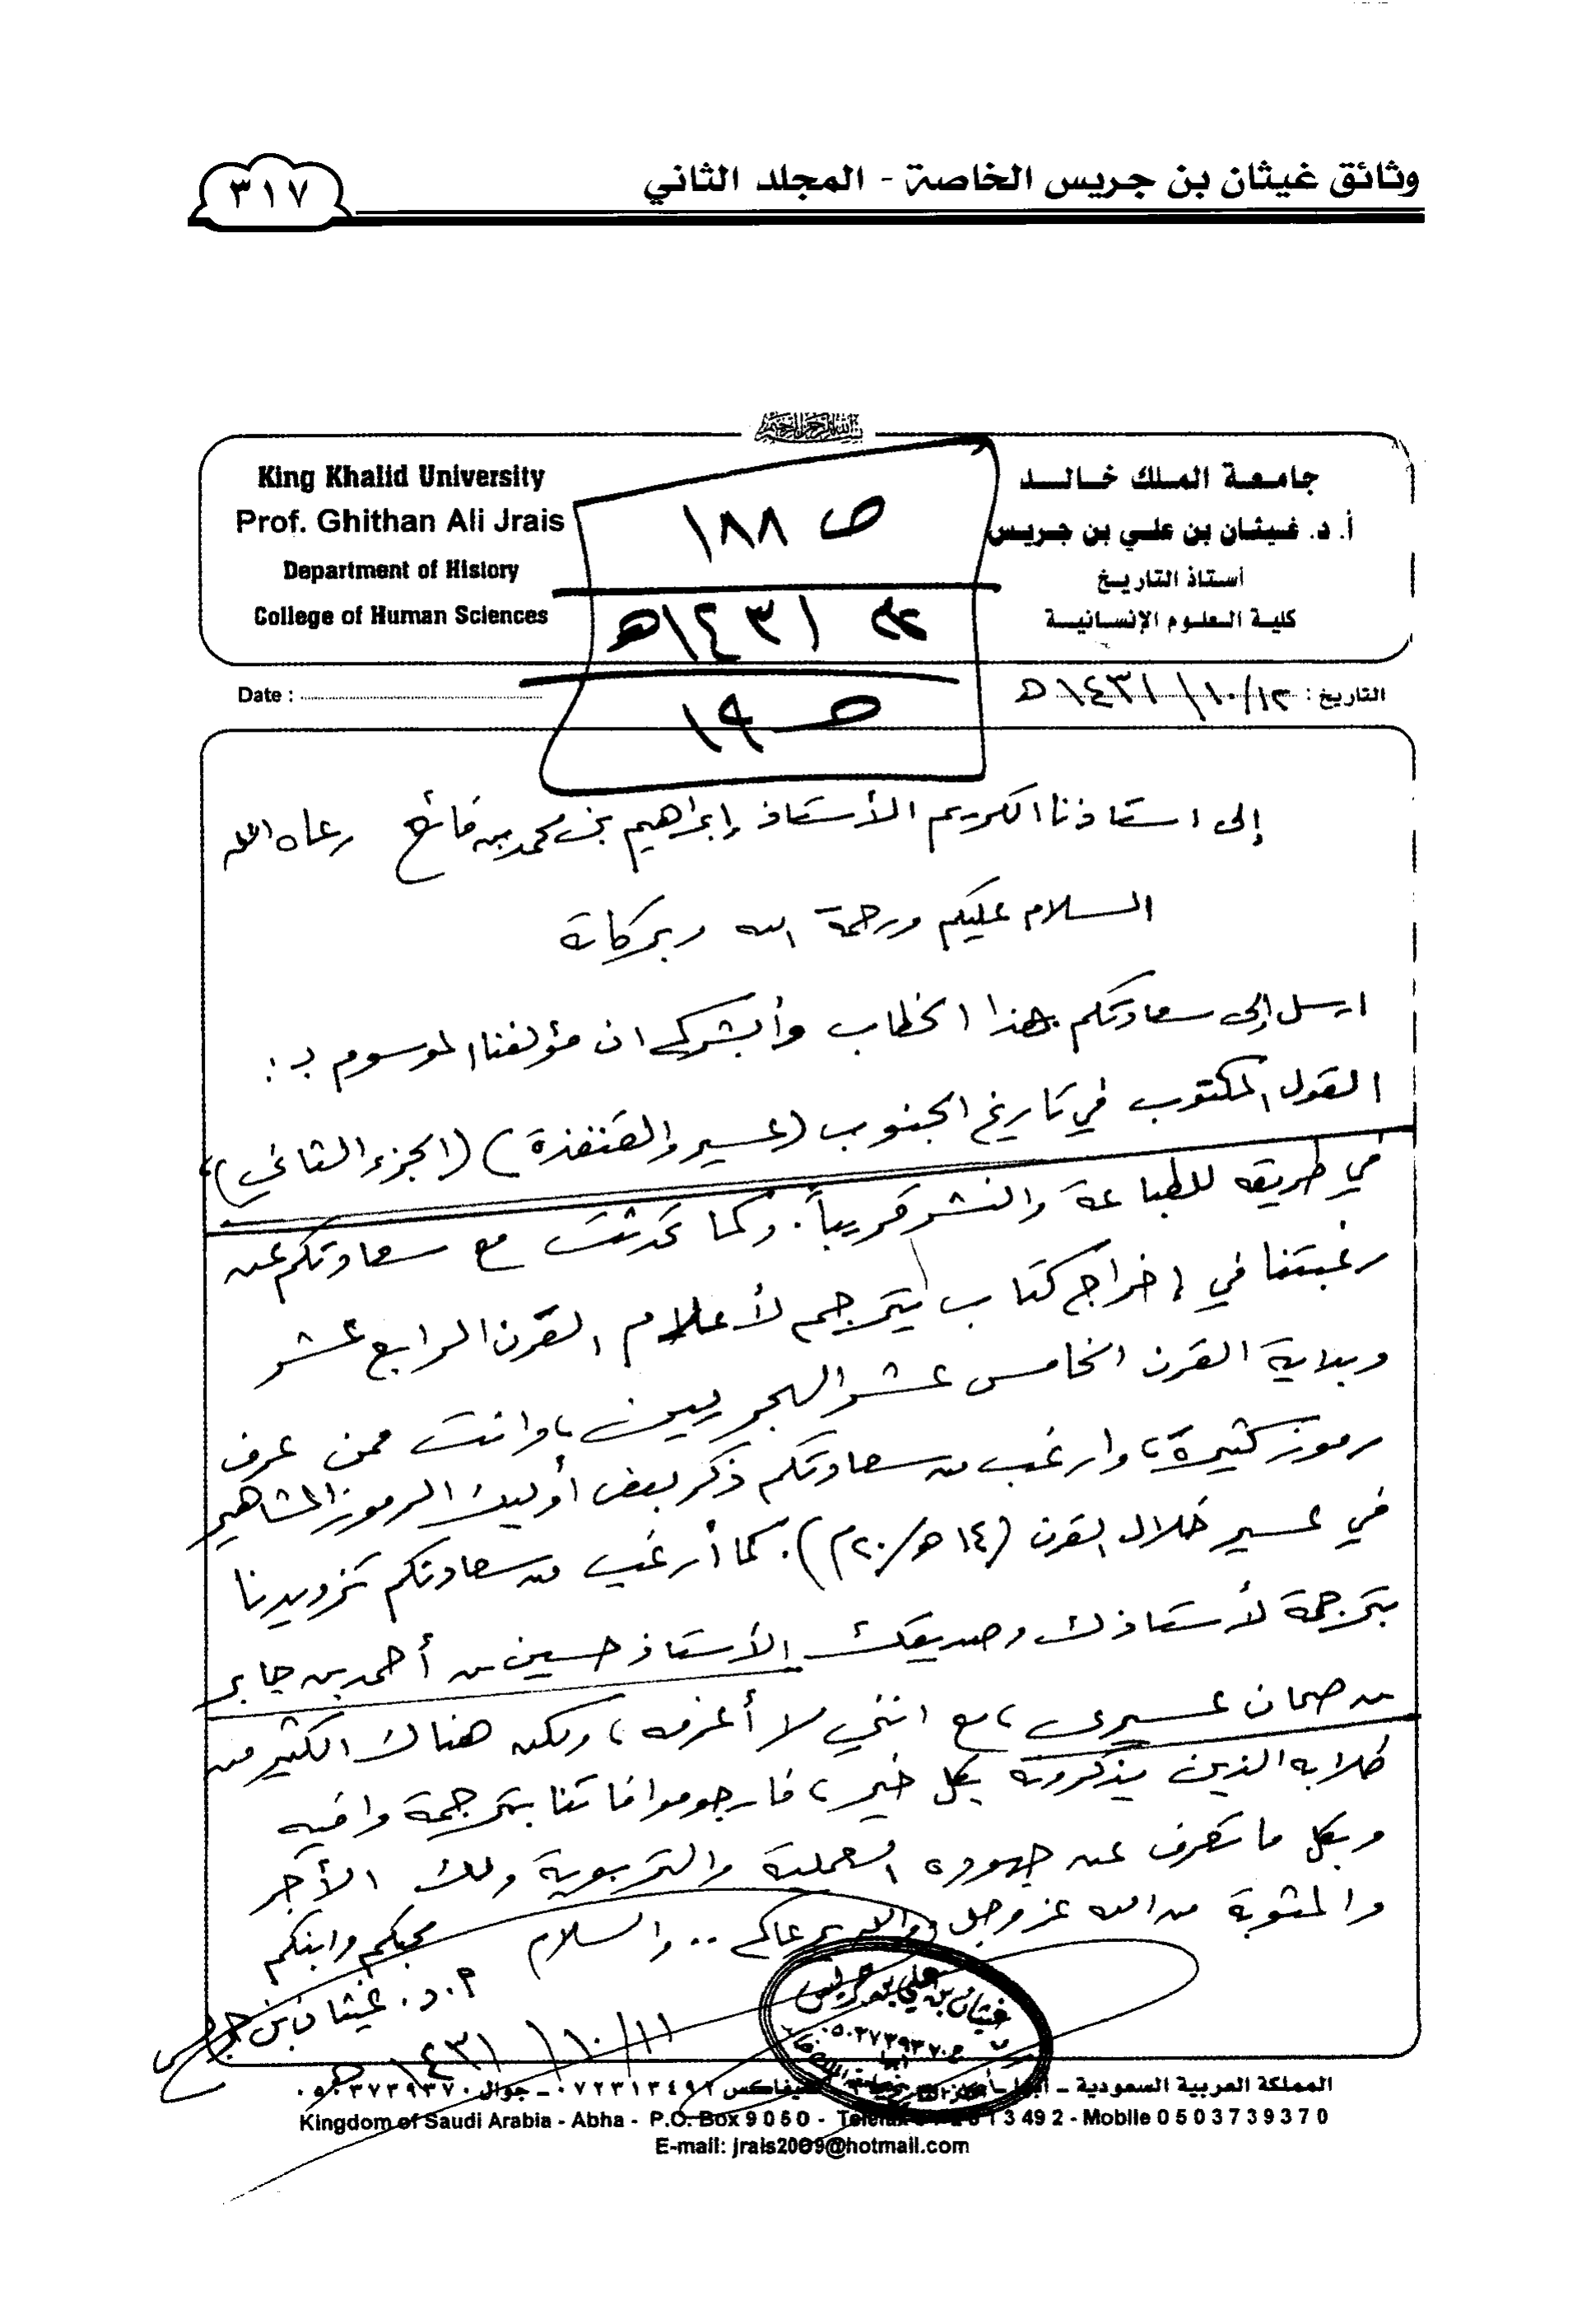 وثائق غيثان بن جريس الخاصة - المجلد الثاني
٣١٧
بسم الله الرحمن الرحيم
جامعة الملك خالد
أ. د. غيثان بن علي بن جريس
أستاذ التاريخ
كلية العلوم الإنسانية
King Khalid University
Prof. Ghithan Ali Jrais
Department of History
College of Human Sciences
ص ١٨٨
١٤٣١هـ
ص ١٩
التاريخ : ١٢/١٠/١٤٣١هـ
Date :
إلى استاذنا الكريم الأستاذ إبراهيم بن محمد بن فائع رعاه الله
السلام عليكم ورحمة الله وبركاته
ارسل إلى سعادتكم بهذا الخطاب وأبشركم ان مؤلفنا الموسوم بـ :
القول المكتوب في تاريخ الجنوب (عسير والقنفذة) (الجزء الثاني)،
في طريقه للطباعة والنشر قريباً. وكما تحدثت مع سعادتكم عن
رغبتنا في إخراج كتاب يترجم لأعلام القرن الرابع عشر
وبداية القرن الخامس عشر الهجريين، وانت ممن عرف
رموز كثيرة، وارغب من سعادتكم ذكر بعض أوليك الرموز المشاهير
في عسير خلال القرن (١٤هـ/٢٠م). كما أرغب من سعادتكم تزويدنا
بترجمة لأستاذك وصديقك الأستاذ حسين بن أحمد بن جابر
بن صمان عسيري، مع انني لا أعرفه، ولكن هناك الكثير من
طلابه الذين يذكرونه بكل خير، فارجو موافاتنا بترجمة وافيه
وبكل ما تعرف عن جهوده العملية والتربوية ولك الأجر
والمثوبة من الله عز وجل والله يرعاكم .. والسلام
محبكم وابنكم
أ. د. غيثان بن جريس
١١/١٠/١٤٣١هـ
غيثان بن علي بن جريس
ج ٠٥٠٣٧٣٩٣٧٠
أبها
المملكة العربية السعودية - أبها - تليفاكس ٠٧٢٣١٣٤٩٢ - جوال ٠٥٠٣٧٣٩٣٧٠
Kingdom of Saudi Arabia - Abha - P.O. Box 9050 - Telefax 072313492 - Mobile 0503739370
E-mail: jrais2009@hotmail.com